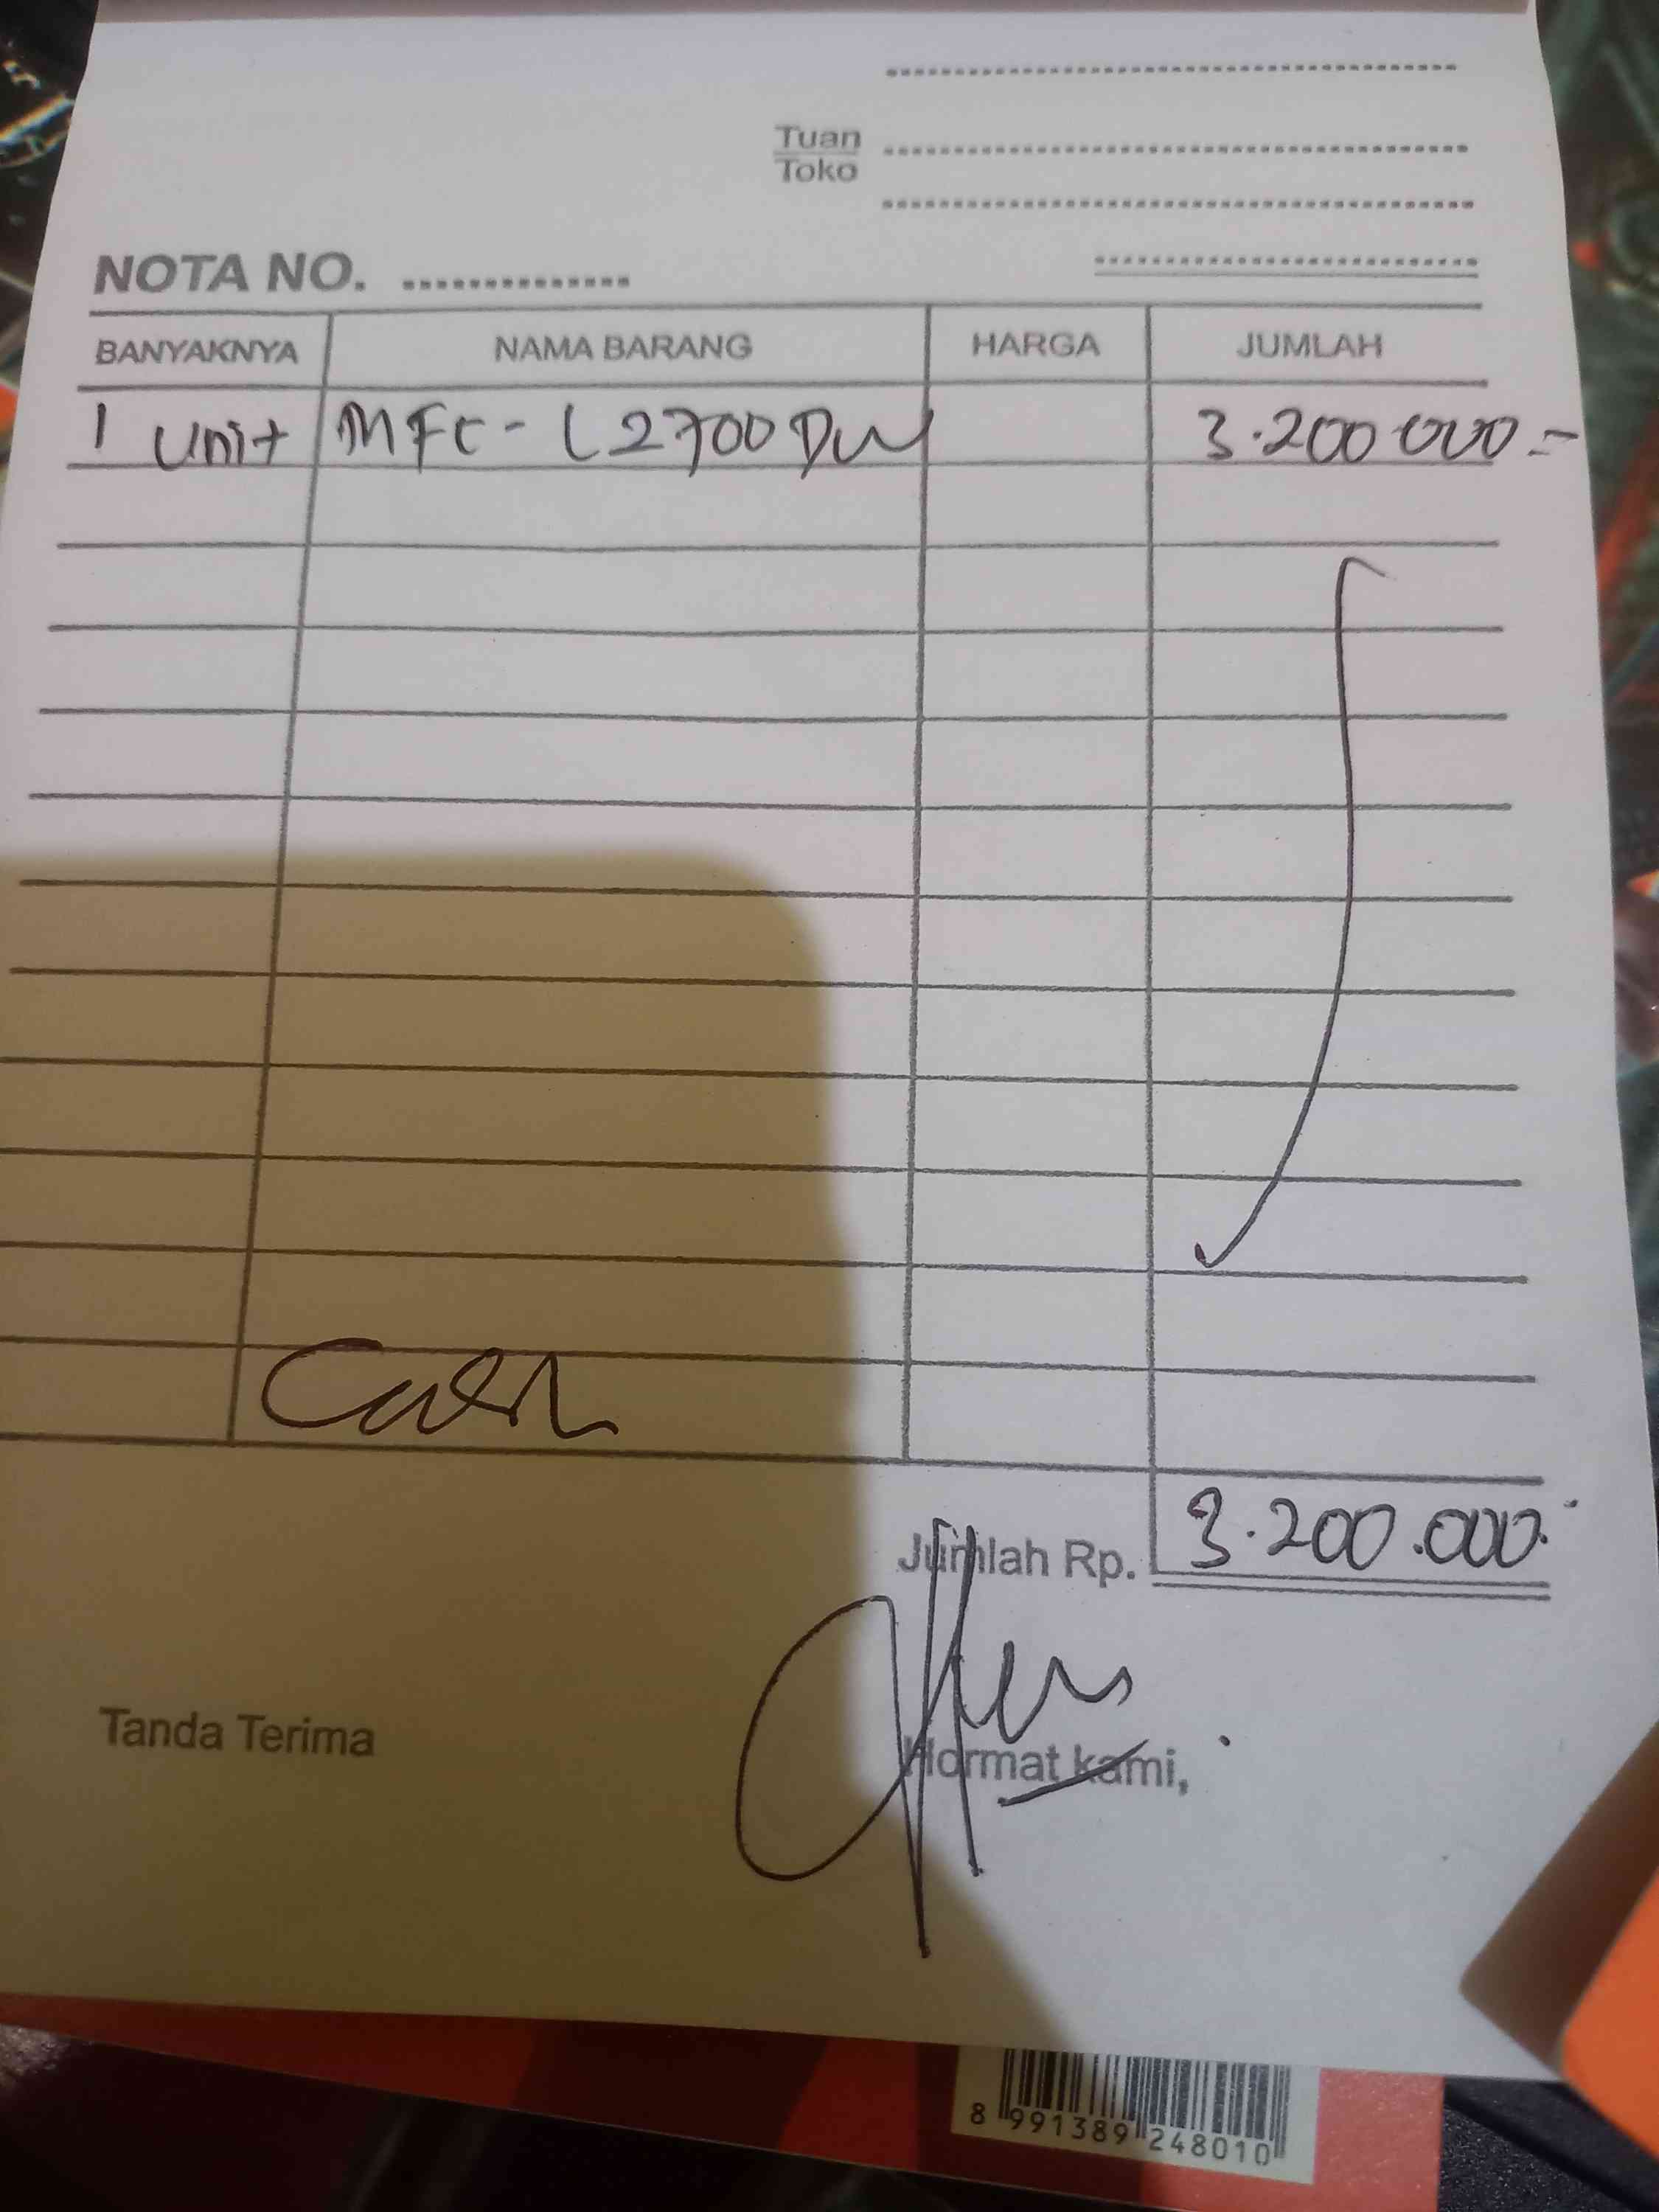 Tuan
Toko
NOTA NO. ...............
BANYAKNYA NAMA BARANG HARGA JUMLAH
1 Unit MFC - L2700 DW 3.200 000 =
Cash
Jumlah Rp. 3.200.000.-
Tanda Terima Hormat kami,
8 991389 248010